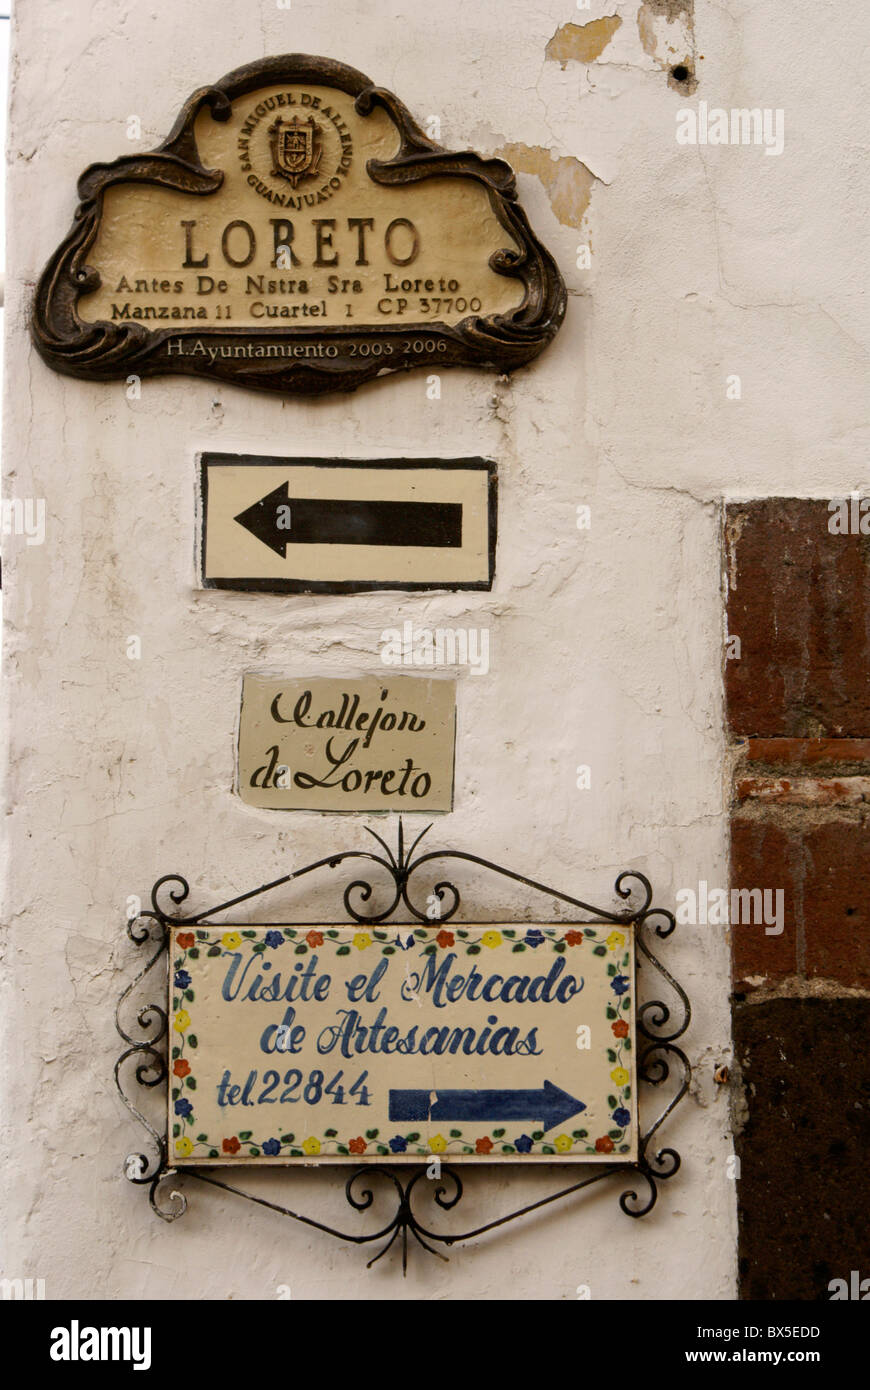 SAN MIGUEL DE ALLENDE
GUANAJUATO
LORETO
Antes De Nstra Sra Loreto
Manzana 11 Cuartel 1 CP 37700
H. Ayuntamiento 2003 2006
Callejon
de Loreto
Visite el Mercado
de Artesanias
tel. 22844
alamy
Image ID: BX5EDD
www.alamy.com